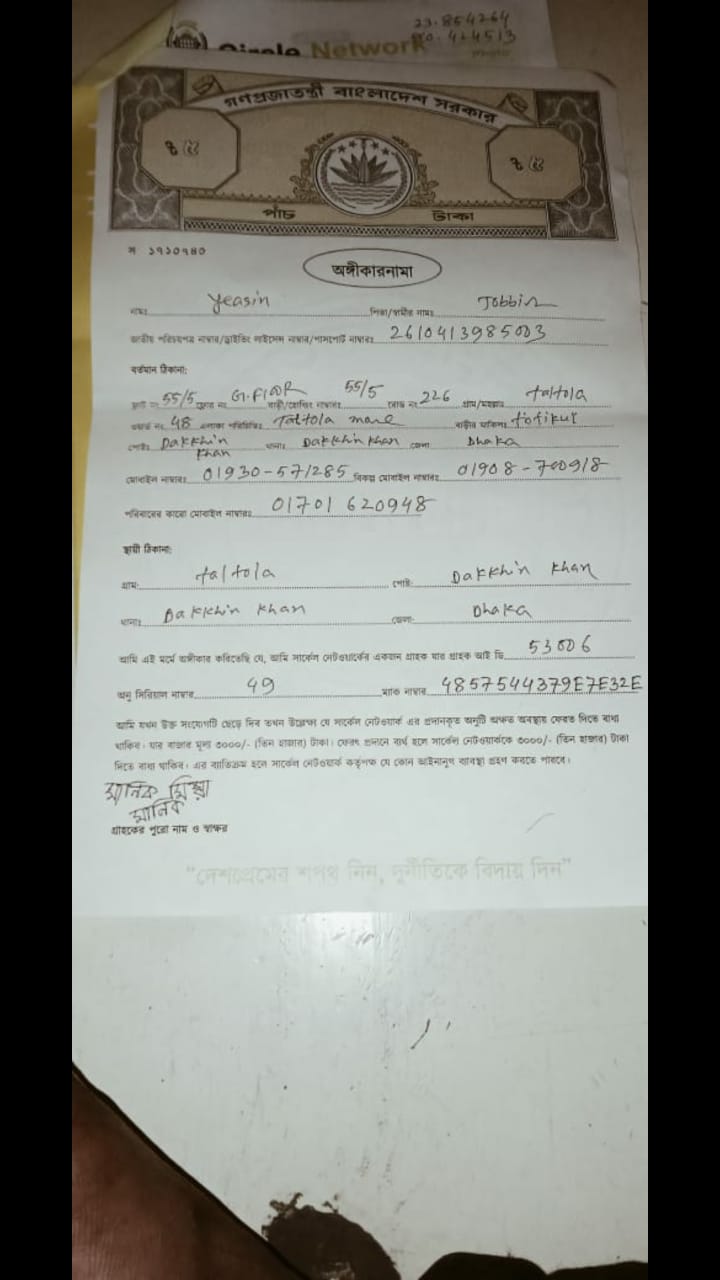 23.854264
90.424513
Circle Network
গণপ্রজাতন্ত্রী বাংলাদেশ সরকার
৳ ৫ ৳ ৫
পাঁচ টাকা
স ১৭১০৭৪৩
অঙ্গীকারনামা
নামঃ Yeasin পিতা/স্বামীর নামঃ Jobbin
জাতীয় পরিচয়পত্র নাম্বার/ড্রাইভিং লাইসেন্স নাম্বার/পাসপোর্ট নাম্বারঃ 2610413985003
বর্তমান ঠিকানা:
ফ্লাট নং 55/5 ফ্লোর নং G.FlOR বাড়ী/হোল্ডিং নাম্বারঃ 55/5 রোড নং 226 গ্রাম/মহল্লাঃ taltola
ওয়ার্ড নং 48 এলাকা পরিচিতিঃ Taltola বাড়ীর মালিকঃ tofikul
পোষ্টঃ Dakkhin Khan থানাঃ Dakkhin Khan জেলা Dhaka
মোবাইল নাম্বারঃ 01930-571285 বিকল্প মোবাইল নাম্বারঃ 01908-700918
পরিবারের কারো মোবাইল নাম্বারঃ 01701620948
স্থায়ী ঠিকানা:
গ্রাম: taltola পোষ্ট: Dakkhin Khan
থানাঃ Dakkhin Khan জেলা: Dhaka
আমি এই মর্মে অঙ্গীকার করিতেছি যে, আমি সার্কেল নেটওয়ার্কের একজন গ্রাহক যার গ্রাহক আই ডি 53006
অনু সিরিয়াল নাম্বার 49 ম্যাক নাম্বার 4857544379E7E32E
আমি যখন উক্ত সংযোগটি ছেড়ে দিব তখন উল্লেখ্য যে সার্কেল নেটওয়ার্ক এর প্রদানকৃত অনুটি অক্ষত অবস্থায় ফেরত দিতে বাধ্য
থাকিব। যার বাজার মূল্য ৩০০০/- (তিন হাজার) টাকা। ফেরৎ প্রদানে ব্যর্থ হলে সার্কেল নেটওয়ার্ককে ৩০০০/- (তিন হাজার) টাকা
দিতে বাধ্য থাকিব। এর ব্যতিক্রম হলে সার্কেল নেটওয়ার্ক কর্তৃপক্ষ যে কোন আইনানুগ ব্যবস্থা গ্রহণ করতে পারবে।
মানিক মিয়া
মানিক
গ্রাহকের পুরো নাম ও স্বাক্ষর
"দেশপ্রেমের শপথ নিন, দুর্নীতিকে বিদায় দিন"